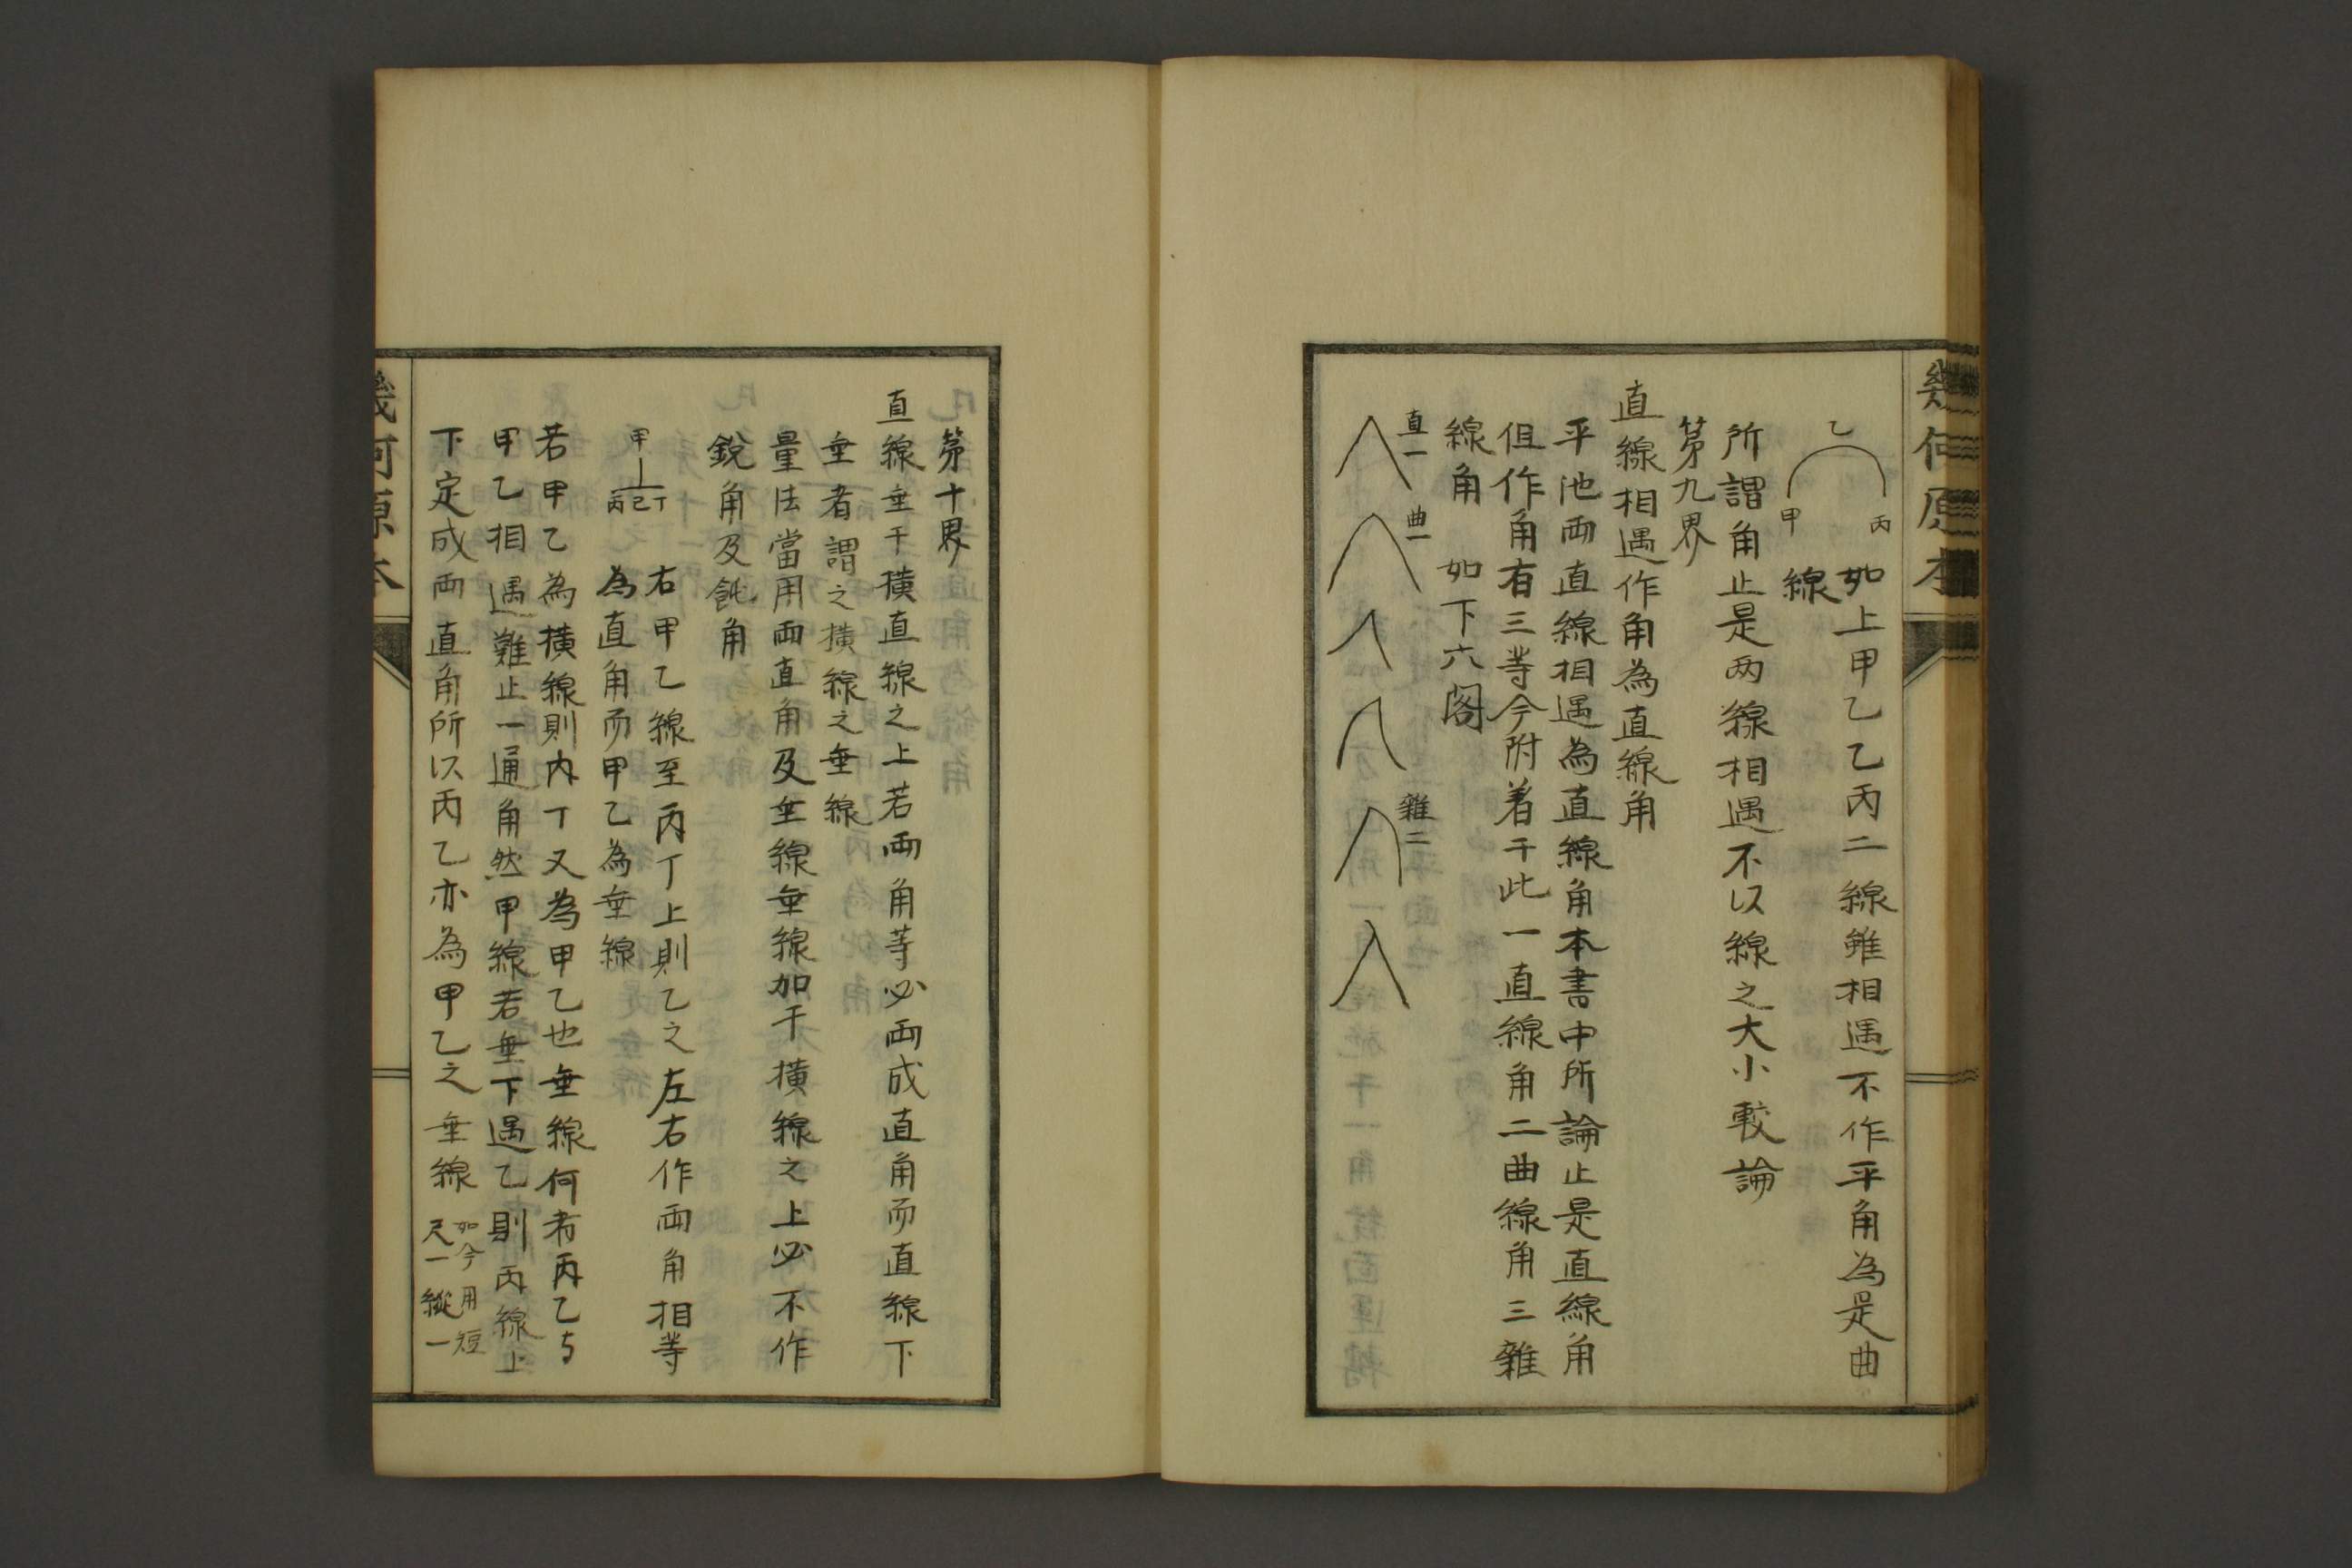 幾何原本
乙
甲
丙
如上甲乙乙丙二線雖相遇不作平角為是曲
線
所謂角止是两線相遇不以線之大小較論
第九界
直線相遇作角為直線角
平池両直線相遇為直線角本書中所論止是直線角
但作角有三等今附着于此一直線角二曲線角三雜
線角 如下六
直一
曲一
雜三
第十界
直線垂于横直線之上若両角等必両成直角而直線下
垂者謂之横線之垂線
量法當用両直角及垂線垂線加于横線之上必不作
銳角及鈍角
甲
丙
丁
右甲乙線至丙丁上則乙之左右作両角相等
為直角而甲乙為垂線
若甲乙為横線則丙丁又為甲乙也垂線何者丙乙与
甲乙相遇雖止一直角然甲線若垂下過乙則丙線上
下定成両直角所以丙乙亦為甲乙之垂線
如今用短
尺一縱一
幾何原本